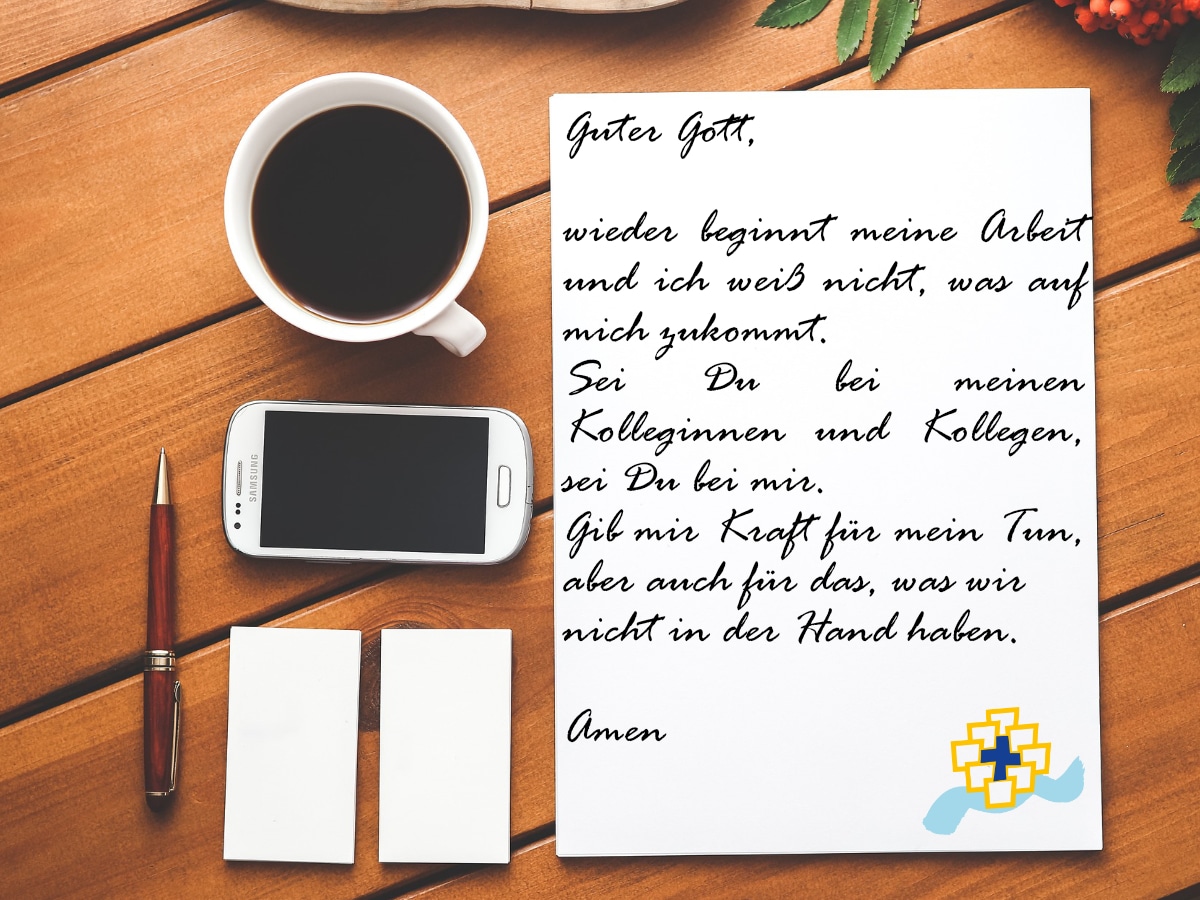 Guter Gott,
wieder beginnt meine Arbeit
und ich weiß nicht, was auf
mich zukommt.
Sei Du bei meinen
Kolleginnen und Kollegen,
sei Du bei mir.
Gib mir Kraft für mein Tun,
aber auch für das, was wir
nicht in der Hand haben.
Amen
SAMSUNG